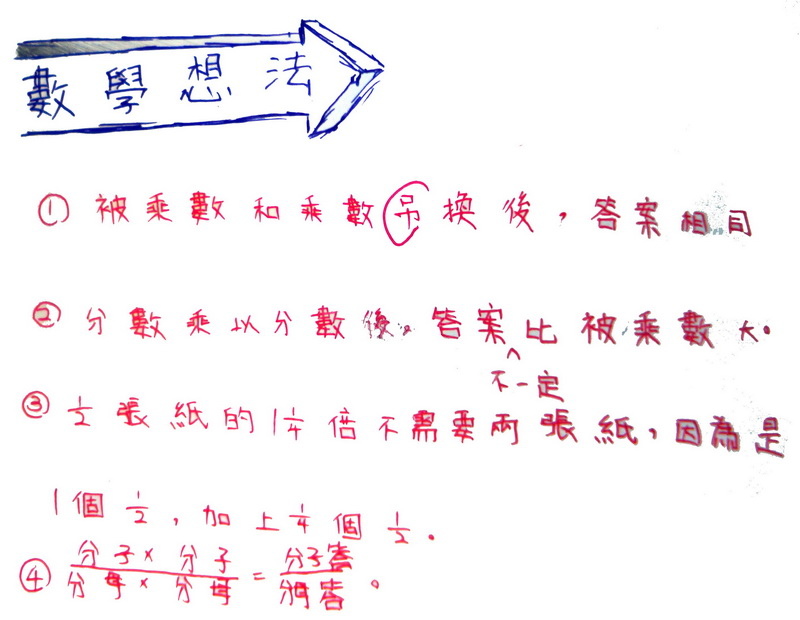 數學想法
① 被乘數和乘數吊換後，答案相同
② 分數乘以分數後，答案不一定比被乘數大。
③ 1/2 張紙的 1 1/4 倍不需要兩張紙，因為是
1個 1/2，加上 1/4 個 1/2。
④ 分子×分子/分母×分母 = 分子答/分母答。